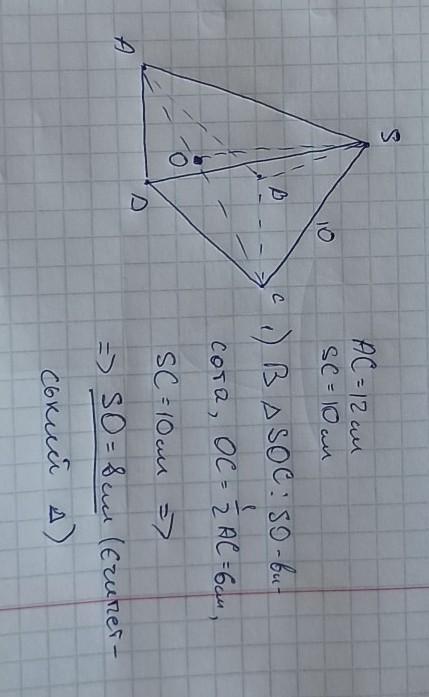 S
A
B
O
D
C
10
AC = 12 см
SC = 10 см
1) В Δ SOC: SO - ви-
сота, OC = 1/2 AC = 6 см,
SC = 10 см =>
=> SO = 8 см (Єгипет-
ський Δ)